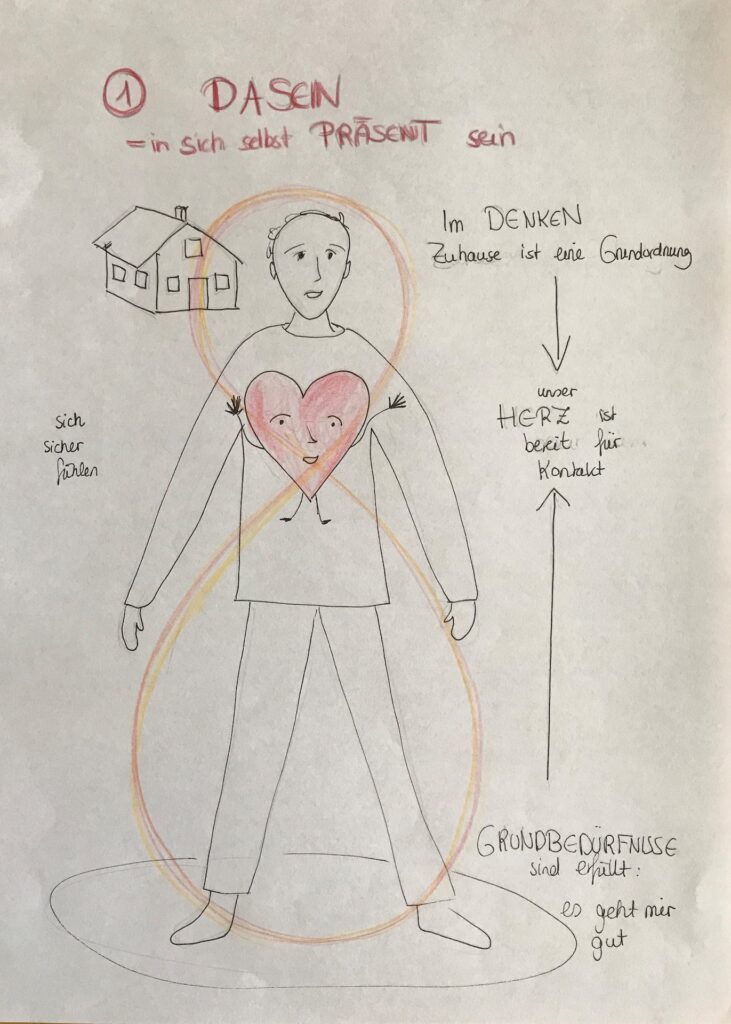 1 DASEIN
= in sich selbst PRÄSENT sein
Im DENKEN
Zuhause ist eine Grundordnung
unser
HERZ ist
bereit für
Kontakt
sich
sicher
fühlen
GRUNDBEDÜRFNISSE
sind erfüllt:
es geht mir
gut